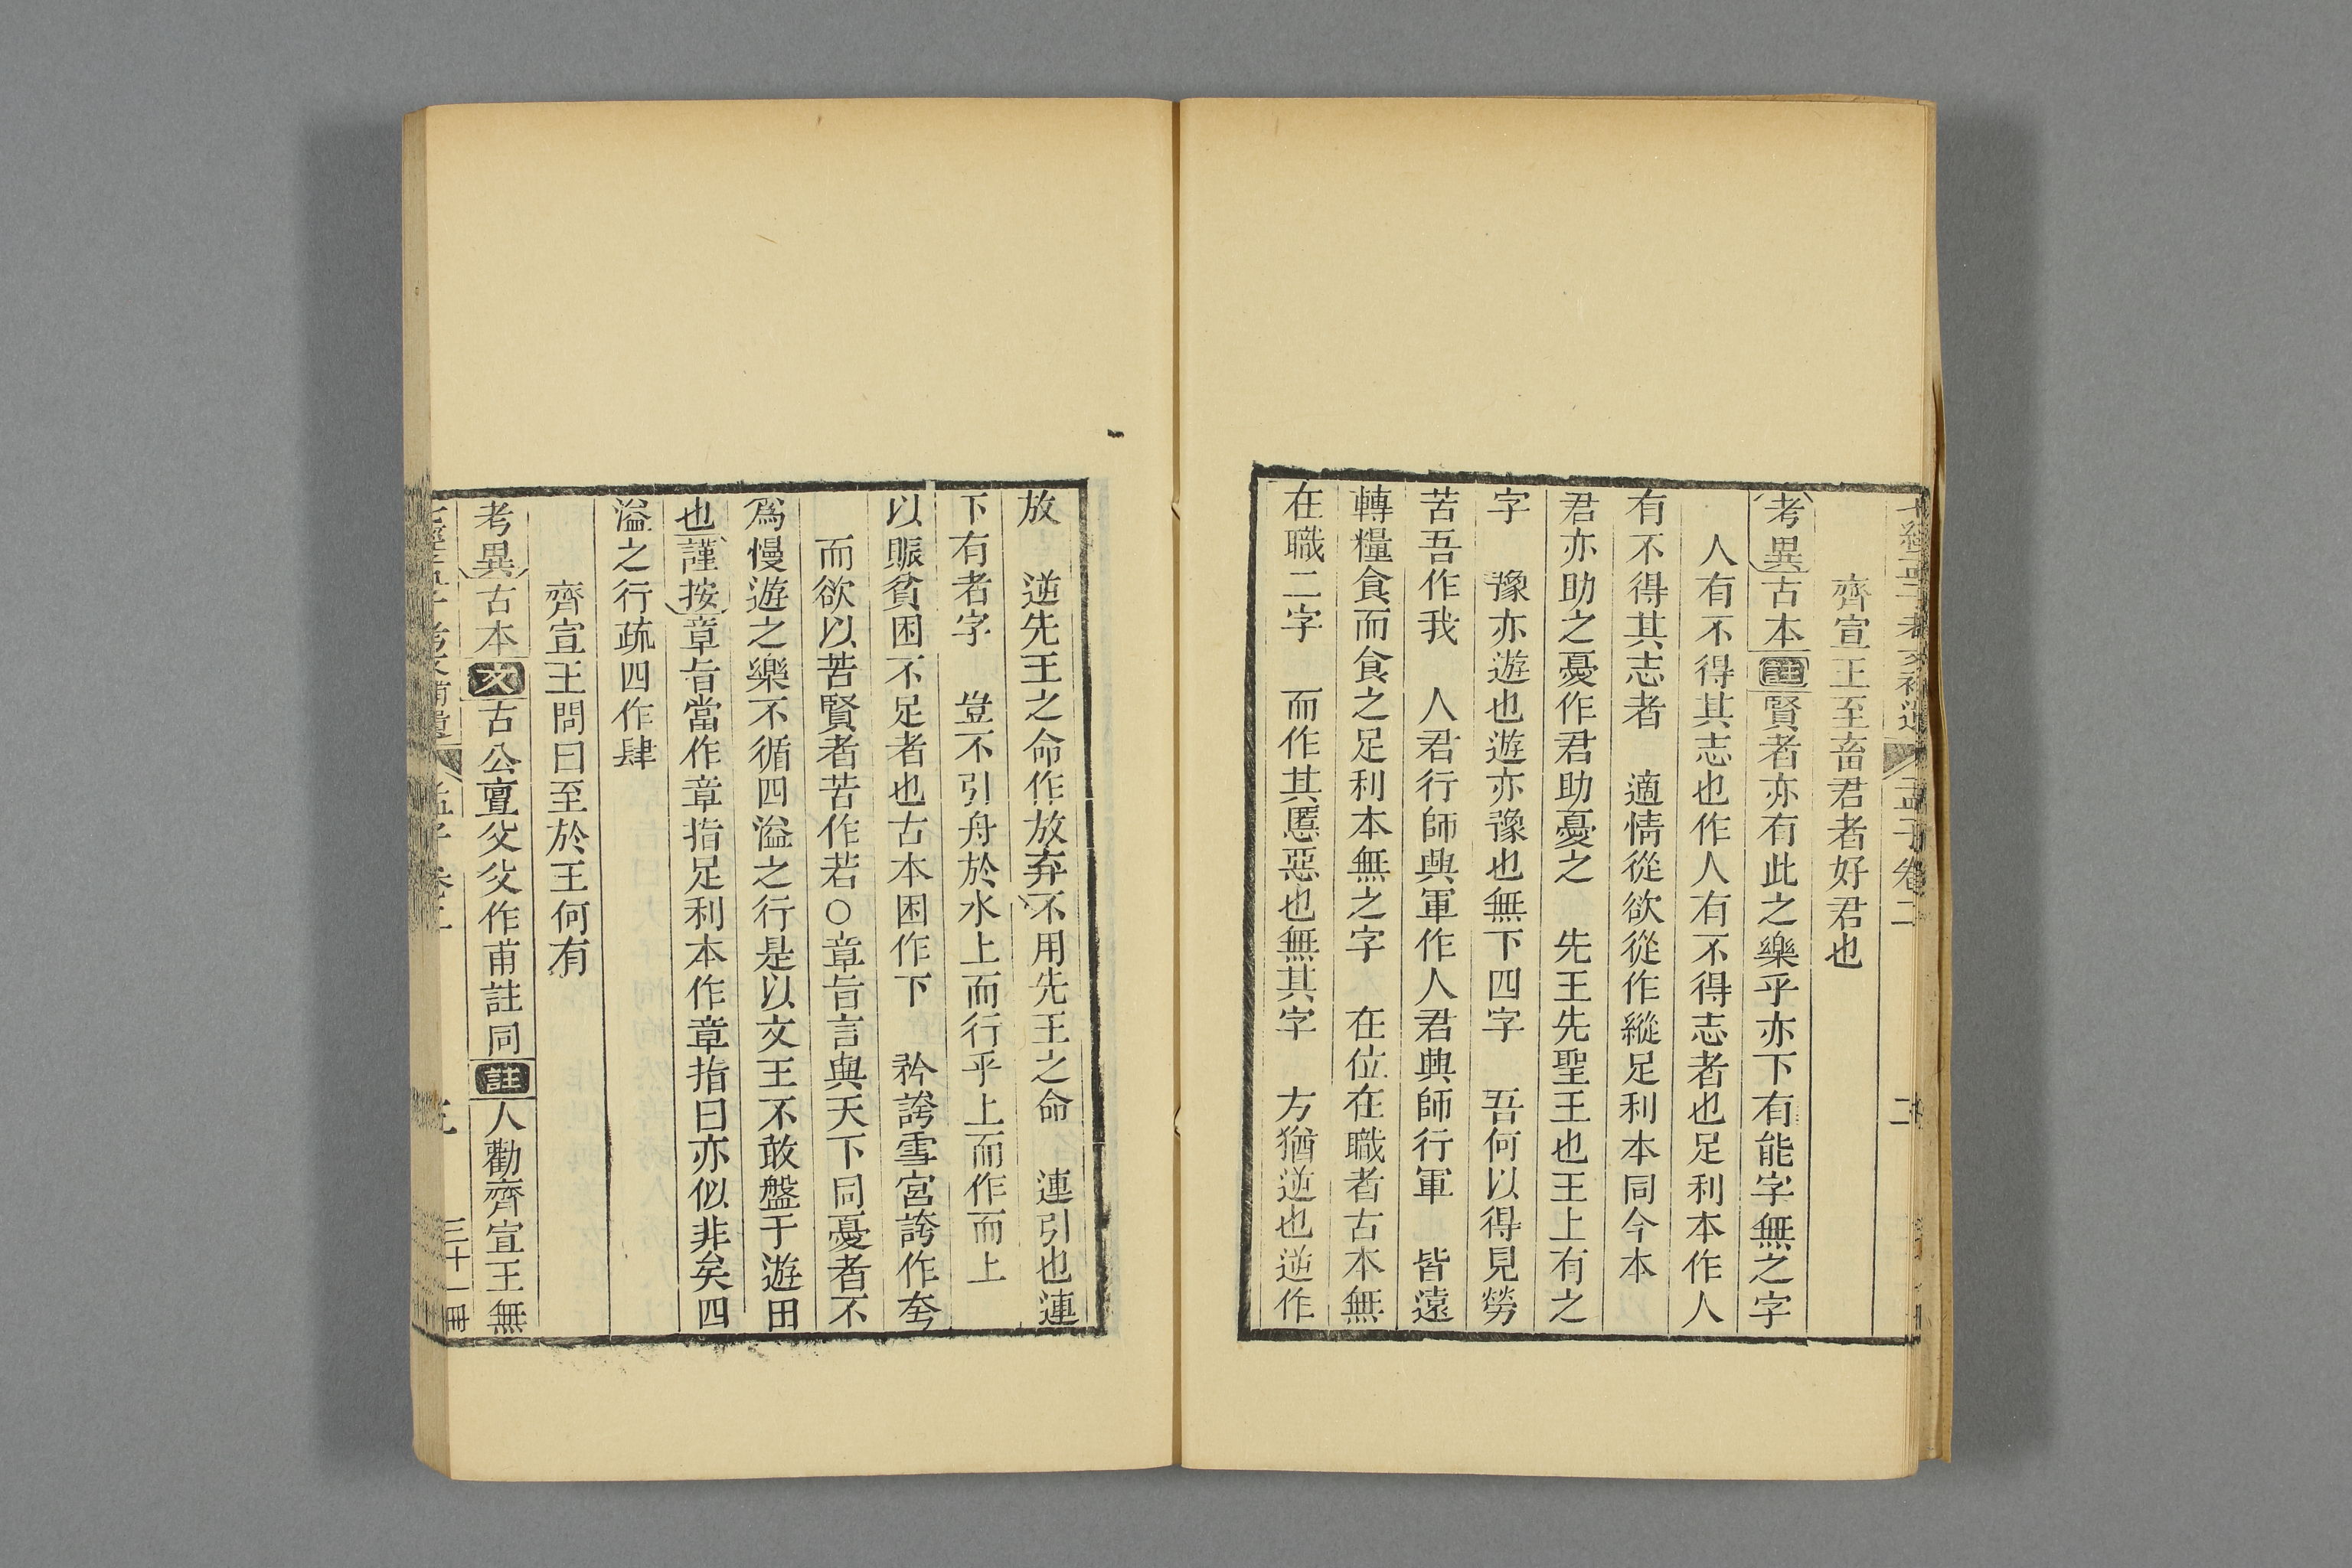 孟子卷二 二
齊宣王至畜君者好君也
考異古本註賢者亦有此之樂乎亦下有能字無之字
人有不得其志也作人有不得志者也足利本作人
有不得其志者 適情從欲從作縱足利本同今本
君亦助之憂作君助憂之 先王先聖王也王上有之
字 豫亦遊也遊亦豫也無下四字 吾何以得見勞
苦吾作我 人君行師興軍作人君興師行軍 皆遠
轉糧食而食之足利本無之字 在位在職者古本無
在職二字 而作其慝惡也無其字 方猶逆也逆作
放 逆先王之命作放弃不用先王之命 連引也連
下有者字 豈不引舟於水上而行乎上而作而上
以賑貧困不足者也古本困作下 矜誇雪宮誇作夸
而欲以苦賢者苦作若○章旨言與天下同憂者不
爲慢遊之樂不循四溢之行是以文王不敢盤于遊田
也謹按章旨當作章指足利本作章指曰亦似非矣四
溢之行疏四作肆
齊宣王問曰至於王何有
考異古本文古公亶父父作甫註同註人勸齊宣王無
三十一冊